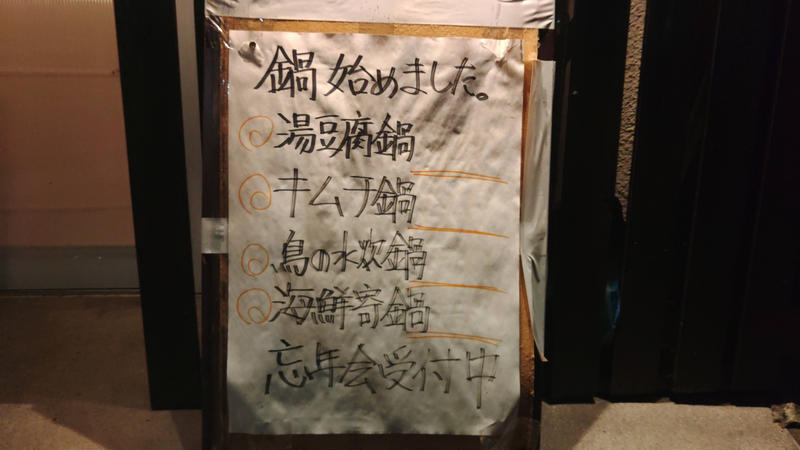 鍋始めました。
湯豆腐鍋
キムチ鍋
鳥の水炊鍋
海鮮寄鍋
忘年会受付中